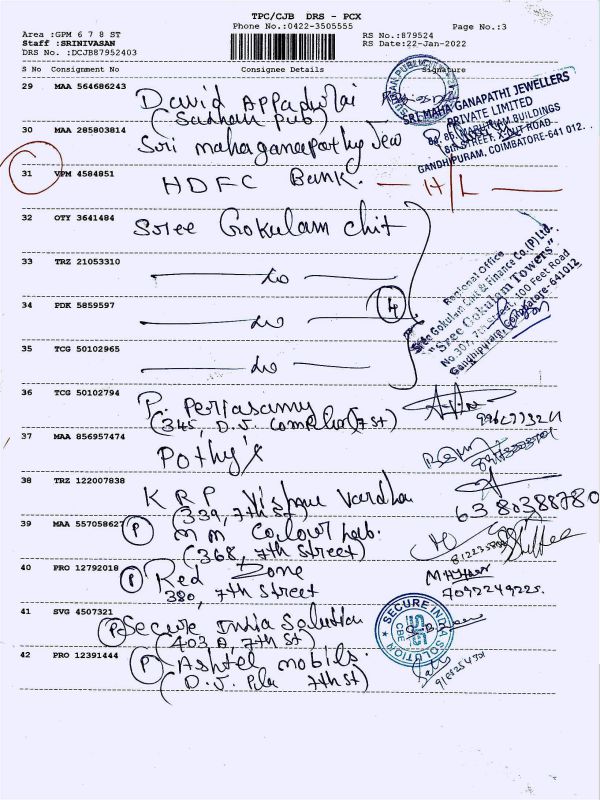 TPC/CJB DRS - PCX
Phone No.:0422-3505555
Page No.:3
Area :GPM 6 7 8 ST
RS No.:879524
Staff :SRINIVASAN
RS Date:22-Jan-2022
DRS No. :DCJB87952403
S No Consignment No Consignee Details Signature
29 MAA 564686243 David Appadurai
30 MAA 285803814 Sri mahaganapathy Jew
SRI MAHA GANAPATHI JEWELLERS
PRIVATE LIMITED
GANDHIPURAM, COIMBATORE-641 012.
31 VPM 4584851 HDFC Bank. H/L
32 OTY 3641484 Sree Gokulam chit
33 TRZ 21053310 — do —
34 PDK 5859597 — do — 4
35 TCG 50102965 — do —
Regional Office
Sree Gokulam Chit & Finance Co.(P) Ltd.
"Sree Gokulam Towers"
36 TCG 50102794 P. Periasamy
37 MAA 856957474 Pothy's
38 TRZ 122007838 KRP Vishnu Vardha
(339, 7th St)
6380388780
39 MAA 557058627 P mm Colour Lab.
(368, 7th Street)
40 PRO 12792018 P Red Zone
380, 7th Street
7092249225.
41 SVG 4507321 P Secure India Solution
(403 A, 7th St)
SECURE INDIA SOLUTION
SIS
CBE
42 PRO 12391444 P Ashtel mobils.
7th St)